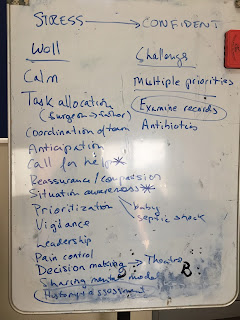 STRESS → CONFIDENT
Well
Calm
Task allocation
(Surgeon → father)
Coordination of team
Anticipation
Call for help*
Reassurance/compassion
Situation awareness*
Prioritization
baby
septic shock
Vigilance
Leadership
Pain control
Decision making → Theatre
Sharing mental model
History + assessment
Challenge
Multiple priorities
Examine records
Antibiotics
B